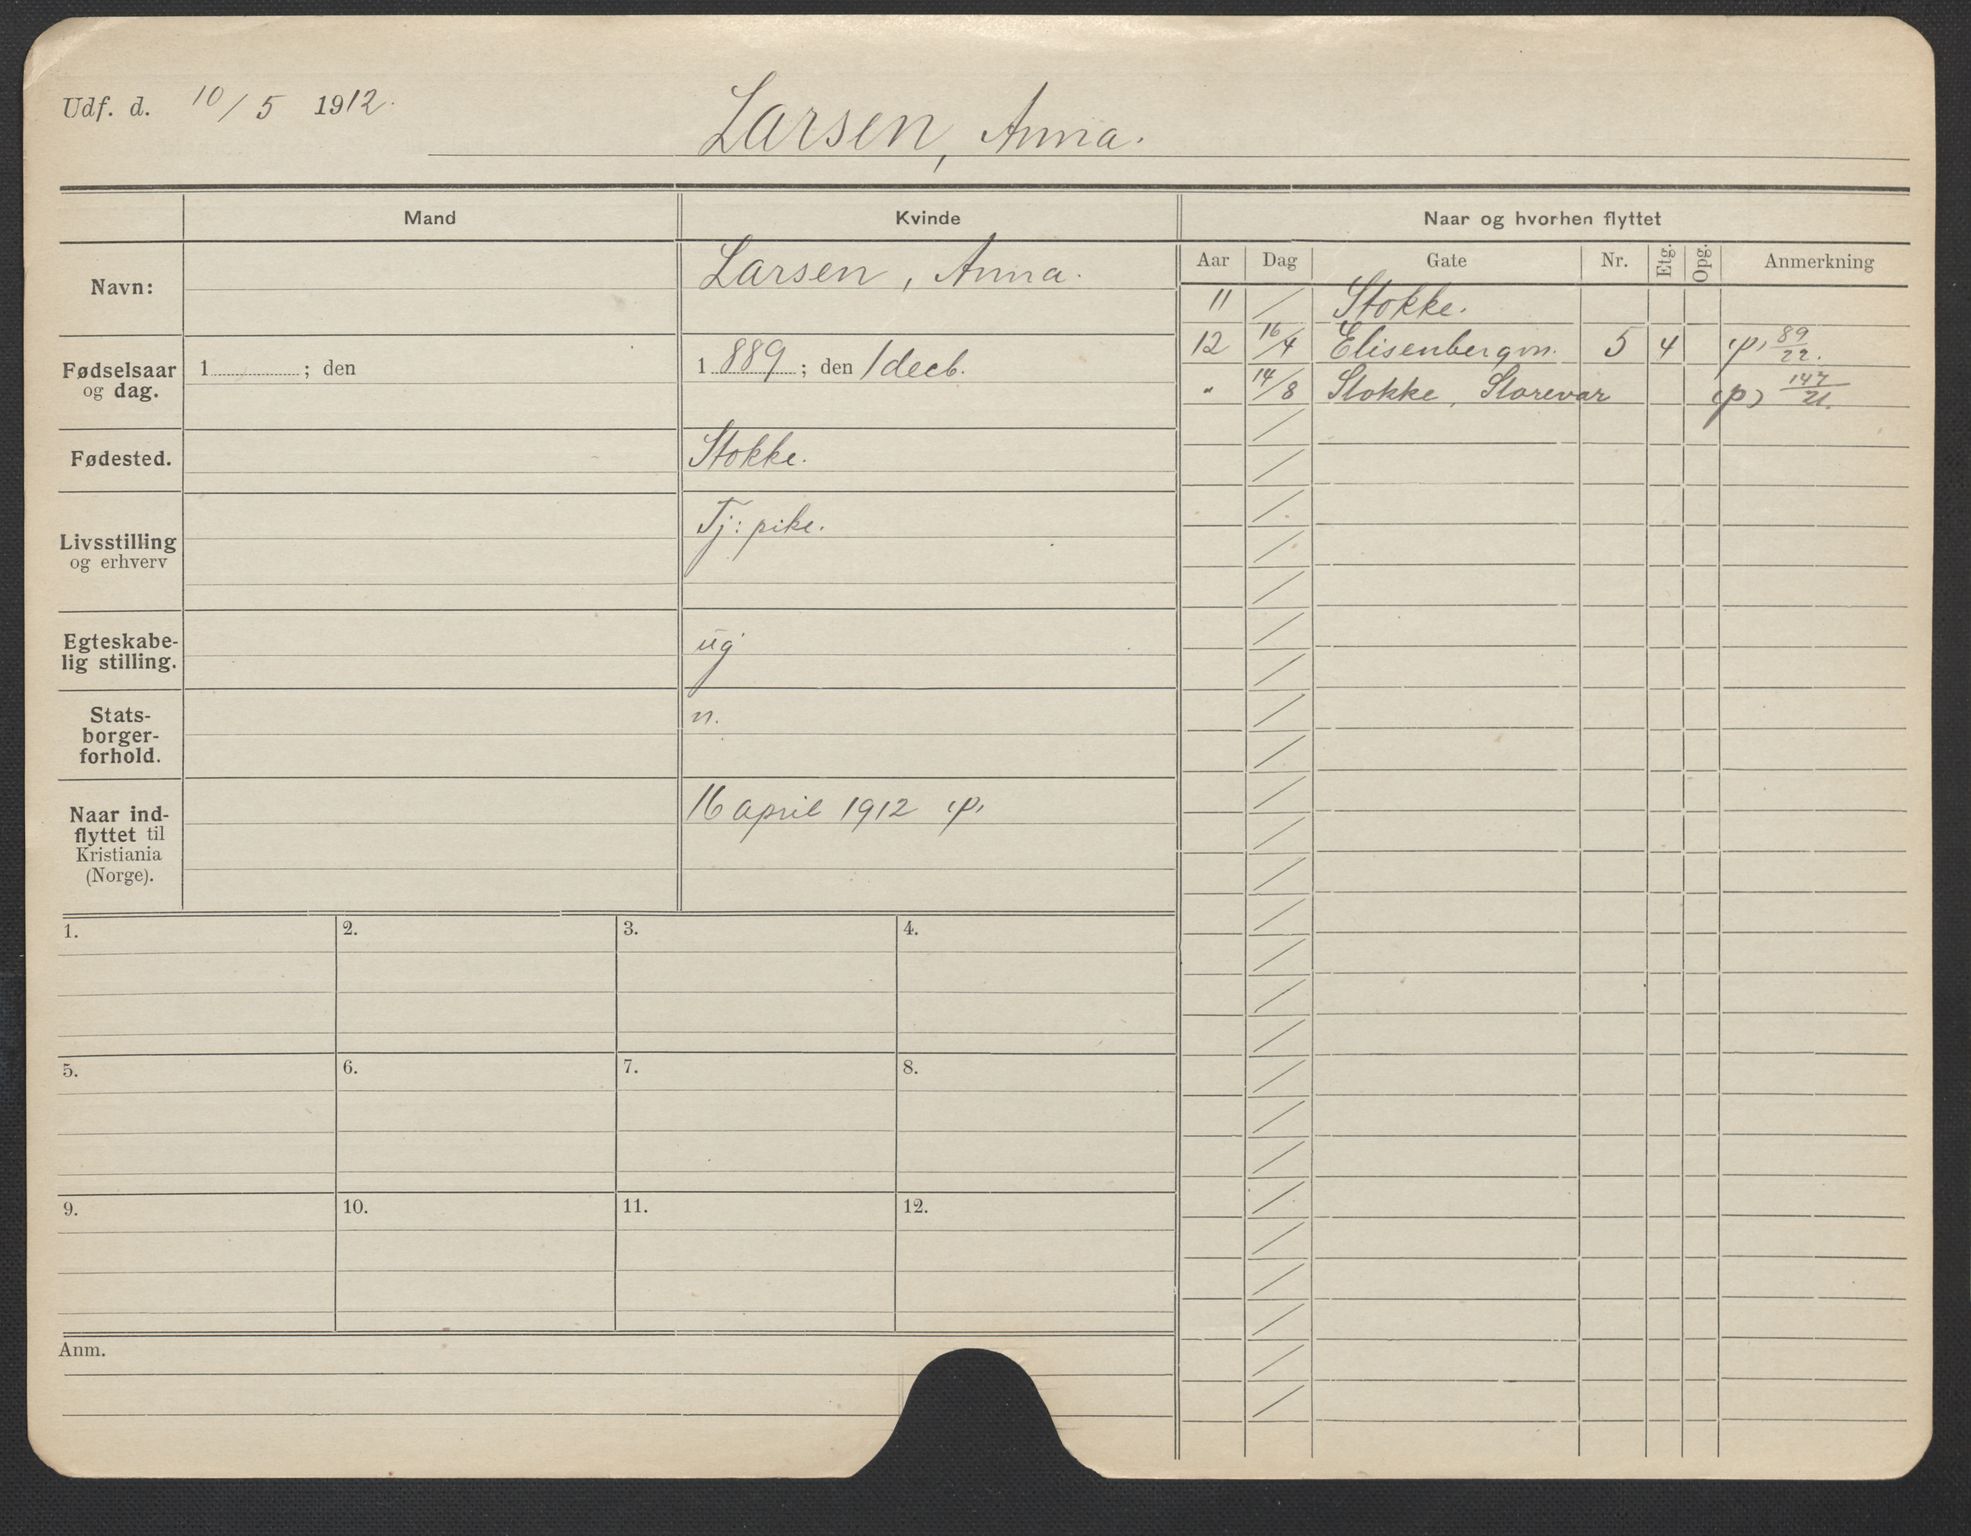 Udf. d. 10/5 1912.
Larsen, Anna.
Mand
Kvinde
Naar og hvorhen flyttet
Navn:
Larsen, Anna.
Fødselsaar
og dag.
1 ; den
1 889 ; den 1 decb.
Fødested.
Stokke.
Livsstilling
og erhverv
Tj: pike.
Egteskabe-
lig stilling.
ug
Stats-
borger-
forhold.
n.
Naar ind-
flyttet til
Kristiania
(Norge).
16 april 1912 (p)
Aar Dag Gate Nr. Etg. Opg. Anmerkning
11 / Stokke.
12 16/4 Elisenbergvn. 5 4 (p) 89/22.
" 14/8 Stokke, Storevar (p) 147/21.
1. 2. 3. 4.
5. 6. 7. 8.
9. 10. 11. 12.
Anm.